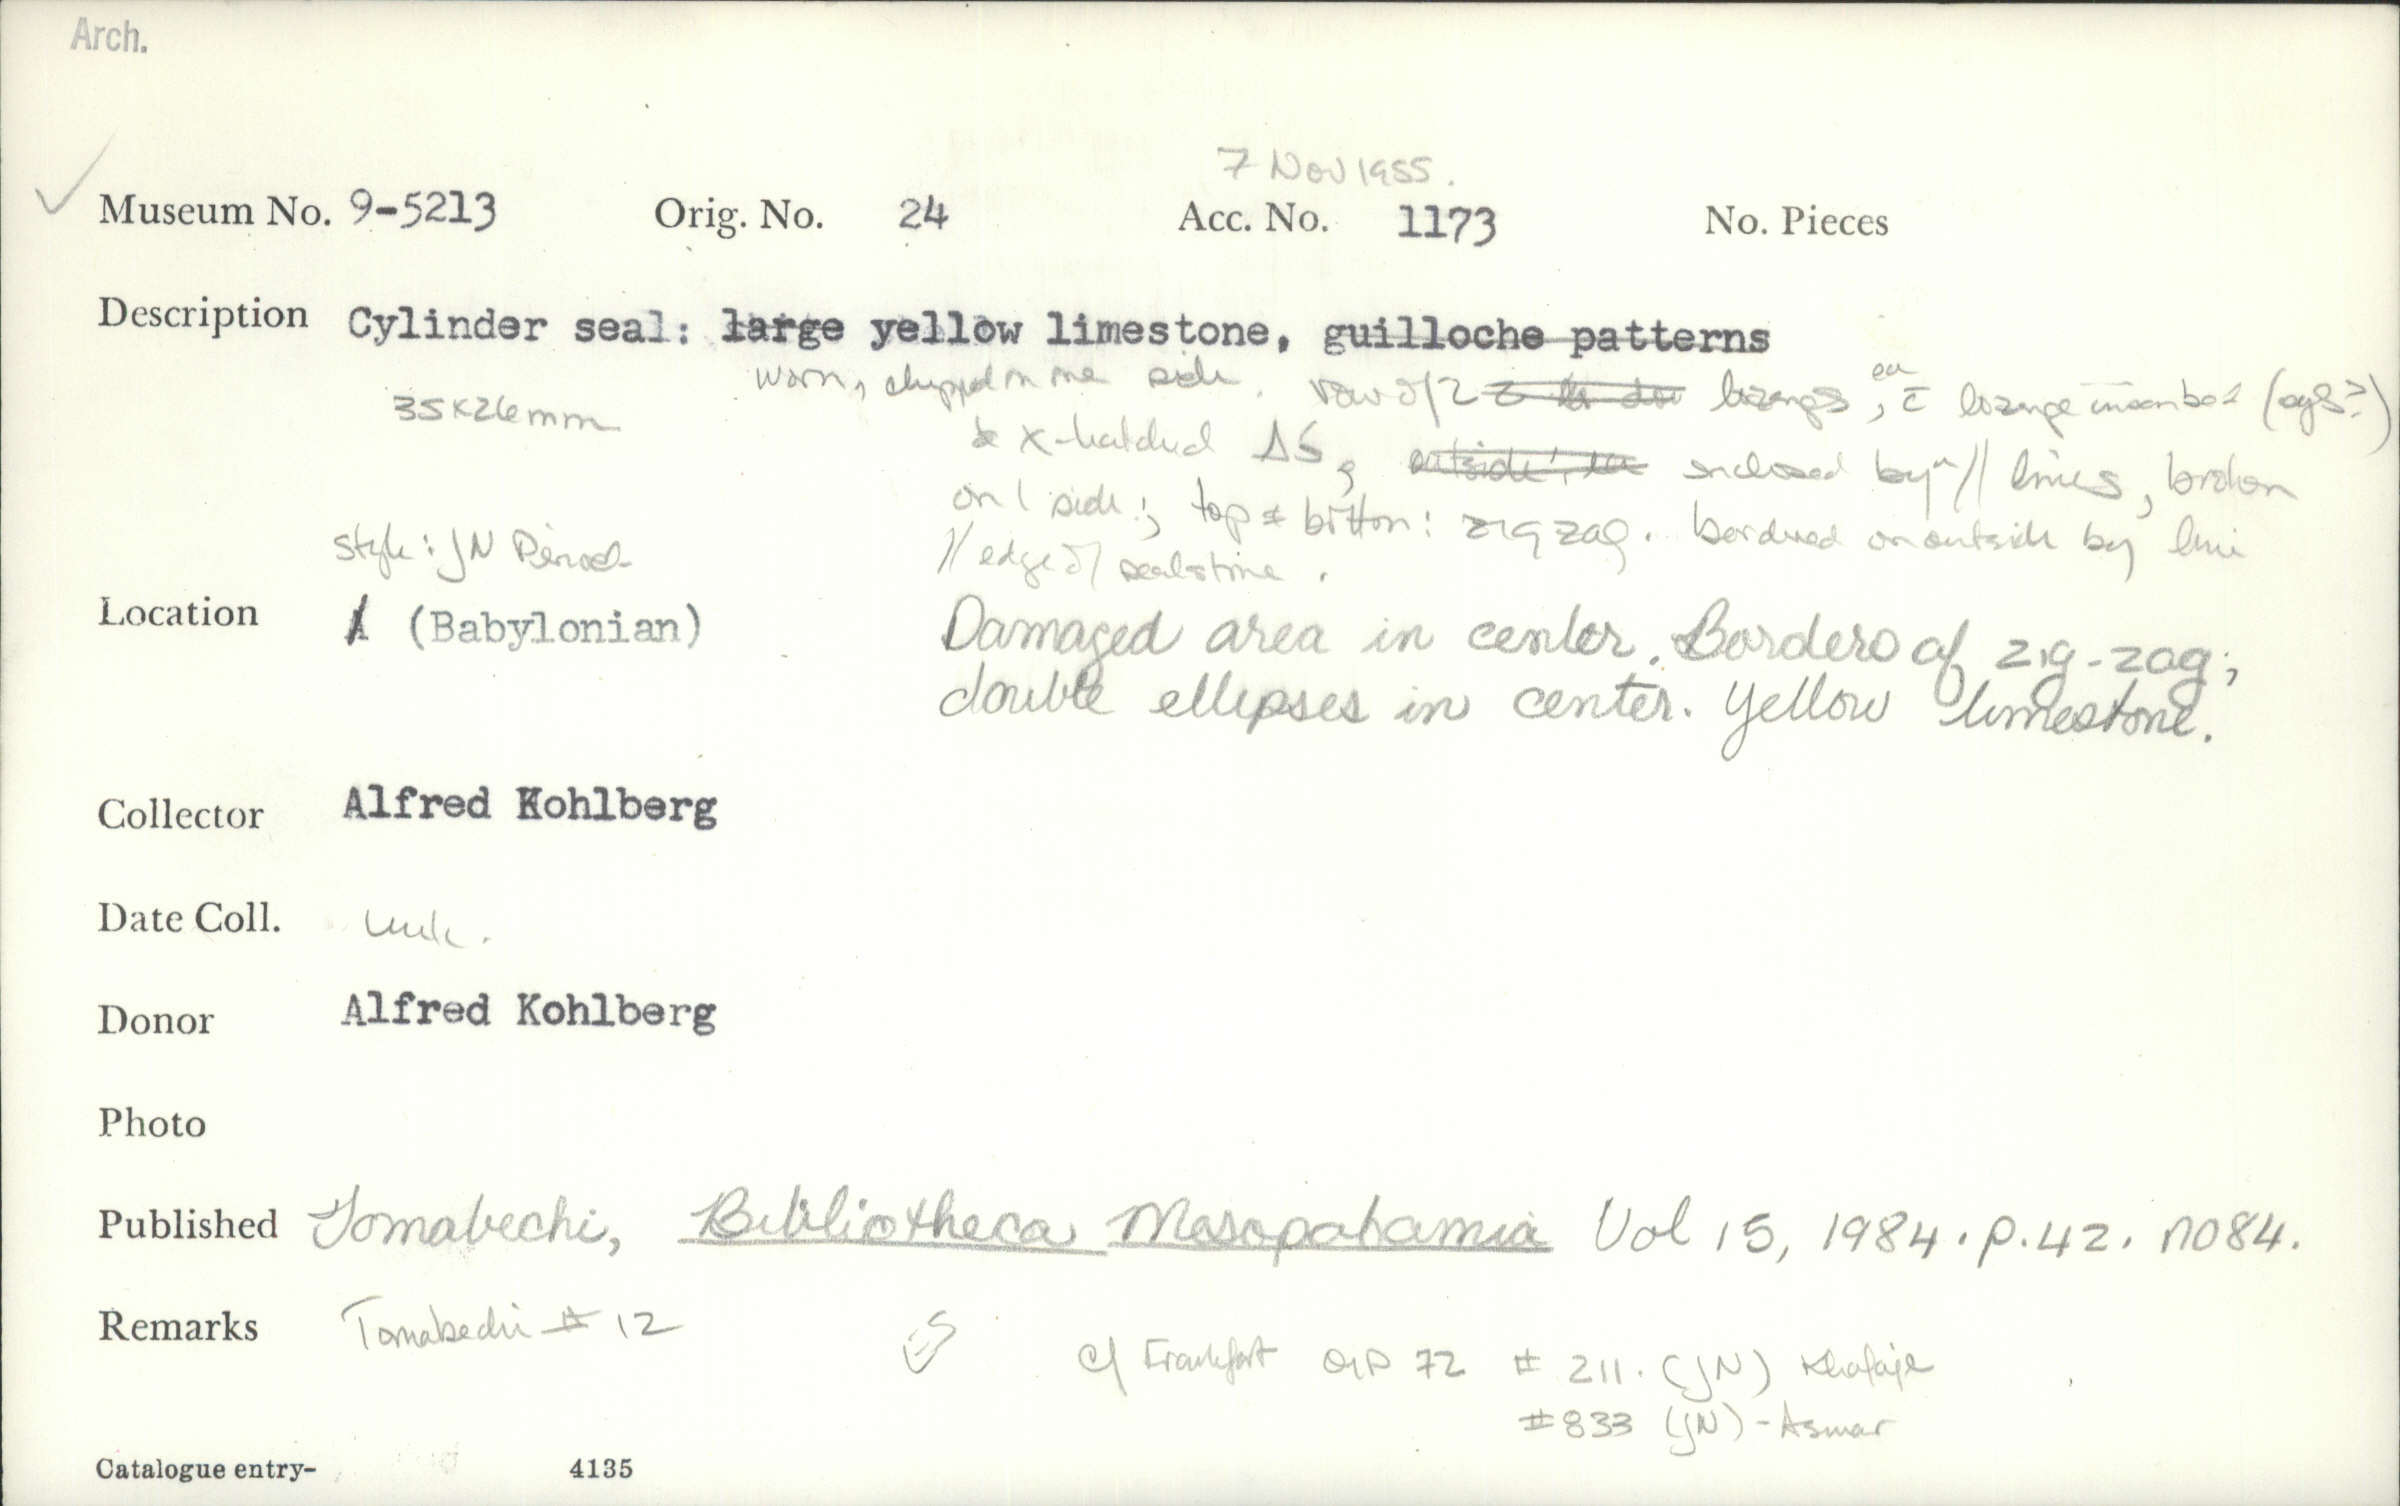 Arch.
7 Nov 1955.
Museum No. 9-5213 Orig. No. 24 Acc. No. 1173 No. Pieces
Description Cylinder seal: large yellow limestone, guilloche patterns
worn, chipped on one side. row of 2 lozenges, ea c̄ lozenge inscribed (eyes?)
35x26mm
& x-hatched Δs, enclosed by // lines, broken
on 1 side; top & bottom: zigzag. bordered on outside by line
style: JN Period
// edge of sealstone.
Location (Babylonian)
Damaged area in center. Borders of zig-zag;
double ellipses in center. Yellow limestone.
Collector Alfred Kohlberg
Date Coll. unk.
Donor Alfred Kohlberg
Photo
Published Tomabechi, Bibliotheca Mesopotamia Vol 15, 1984. p. 42. no 84.
Remarks Tomabechi # 12
cf Frankfort OIP 72 # 211. (JN) Khafaje
#833 (JN) - Asmar
Catalogue entry- 4135